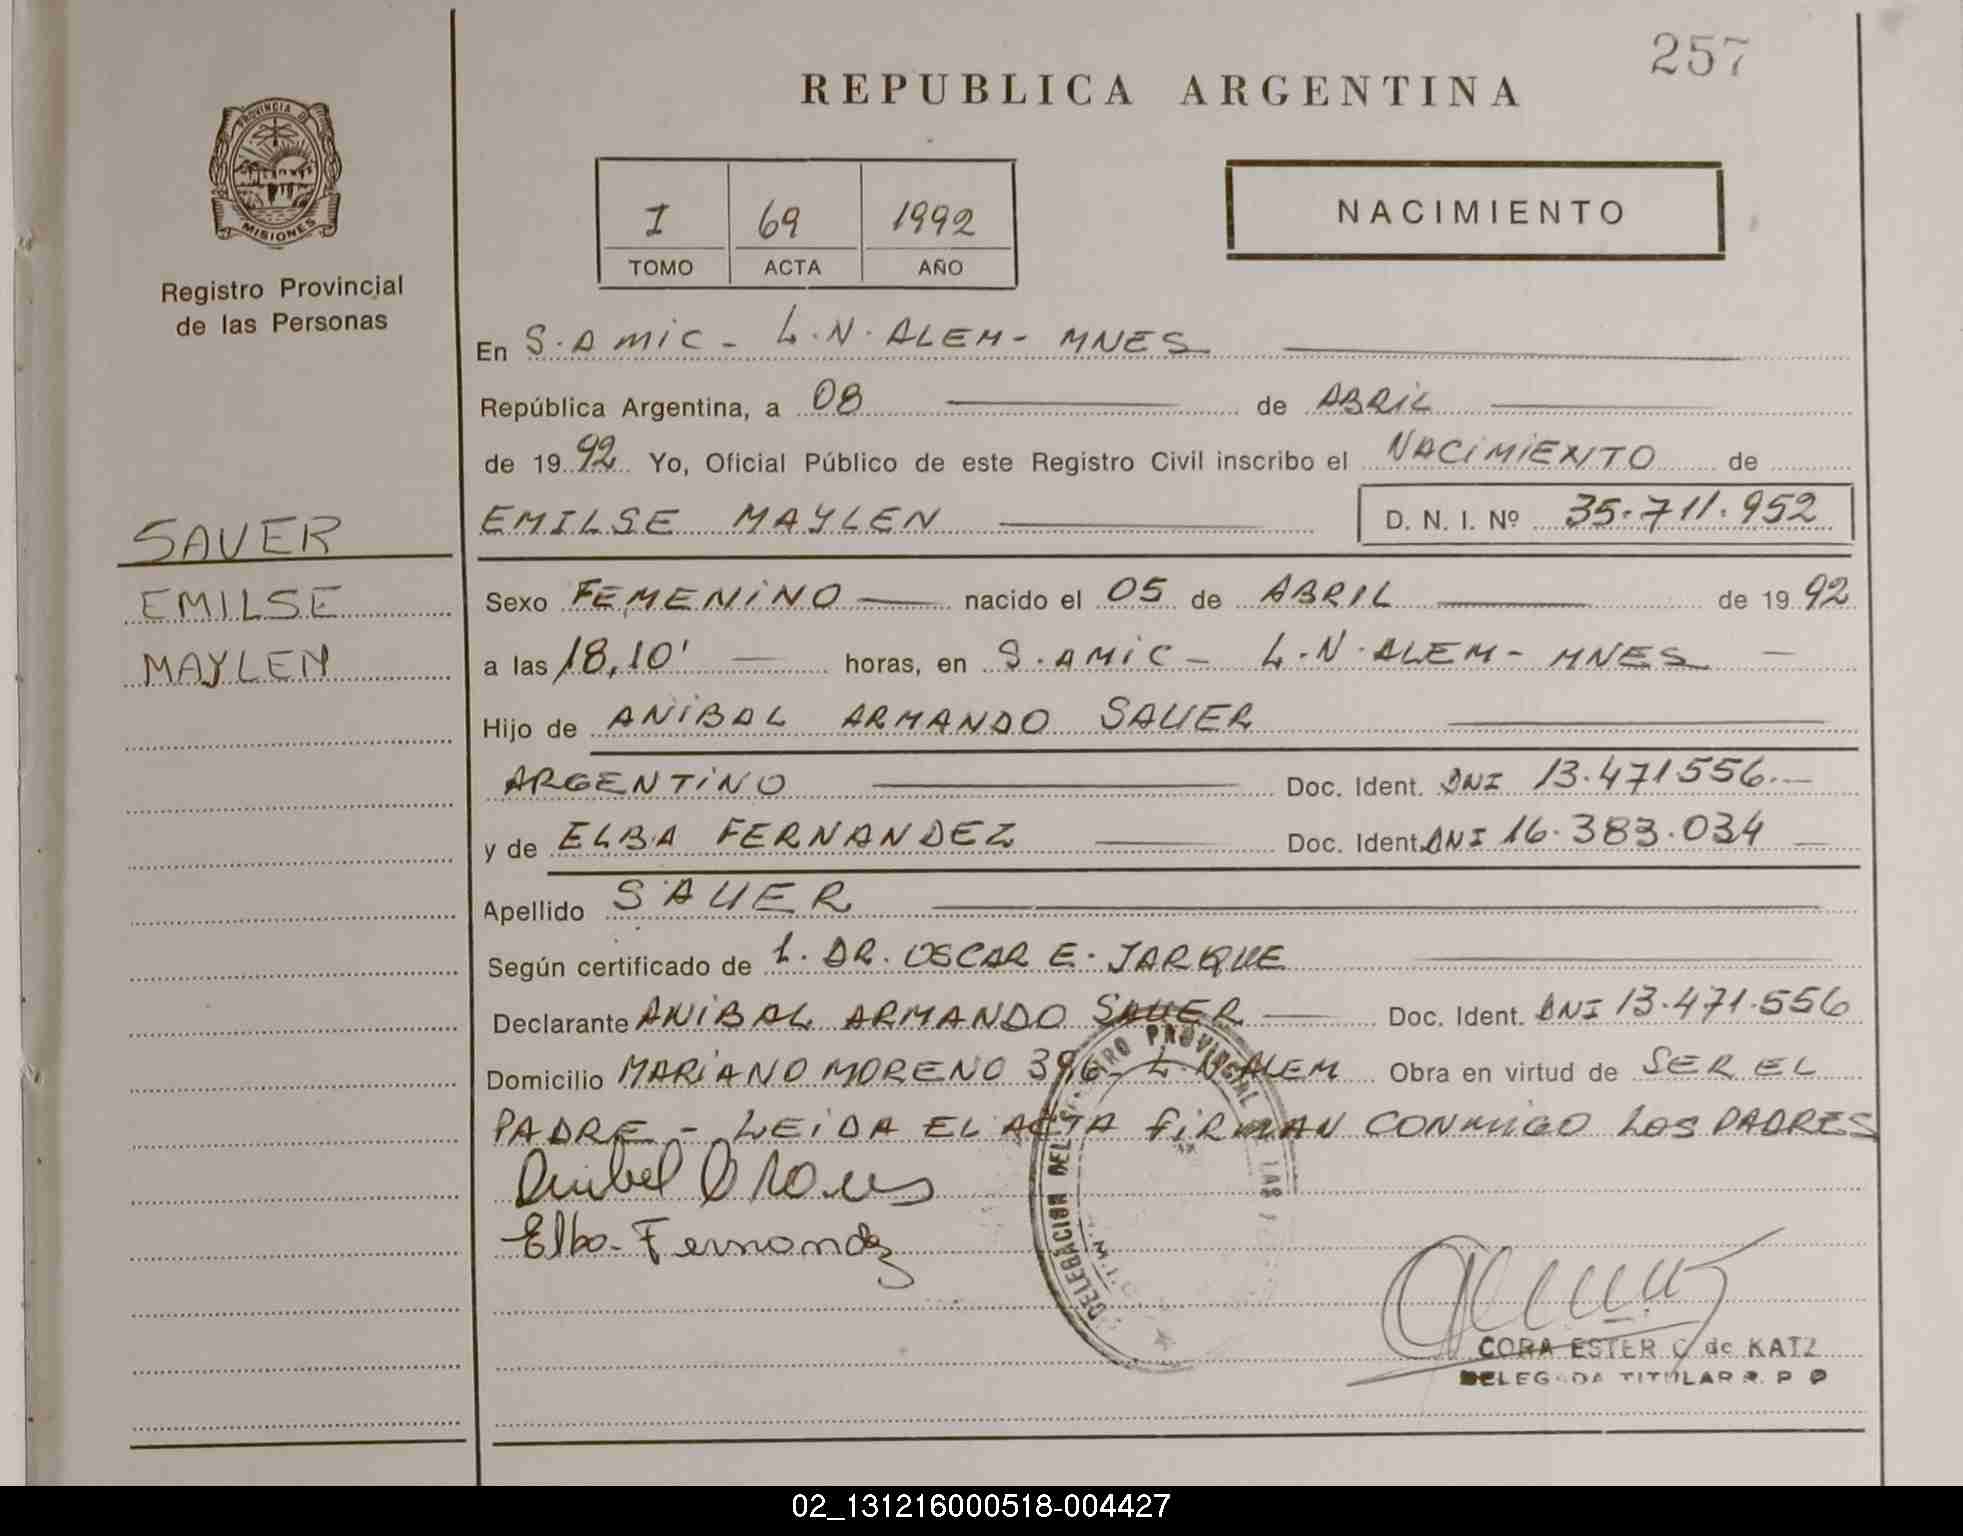 257
REPUBLICA ARGENTINA
PROVINCIA DE
MISIONES
Registro Provincial
de las Personas
I 69 1992
TOMO ACTA AÑO
NACIMIENTO
En S. AMIC - L.N. ALEM - MNES
República Argentina, a 08 de ABRIL
de 1992 Yo, Oficial Público de este Registro Civil inscribo el NACIMIENTO de
EMILSE MAYLEN D. N. I. Nº 35.711.952
SAUER
EMILSE
MAYLEN
Sexo FEMENINO nacido el 05 de ABRIL de 1992
a las 18,10' horas, en S. AMIC - L.N. ALEM - MNES
Hijo de ANIBAL ARMANDO SAUER
ARGENTINO Doc. Ident. DNI 13.471556.
y de ELBA FERNANDEZ Doc. Ident. DNI 16.383.034
Apellido SAUER
Según certificado de L. DR. OSCAR E. JARQUE
Declarante ANIBAL ARMANDO SAUER Doc. Ident. DNI 13.471.556
Domicilio MARIANO MORENO 396 - L.N. ALEM Obra en virtud de SER EL
PADRE - LEIDA EL ACTA FIRMAN CONMIGO LOS PADRES
Anibel
Elba Fernandez
DELEGACION DEL REGISTRO PROVINCIAL LAS
CORA ESTER C de KATZ
DELEGADA TITULAR R. P P
02_131216000518-004427